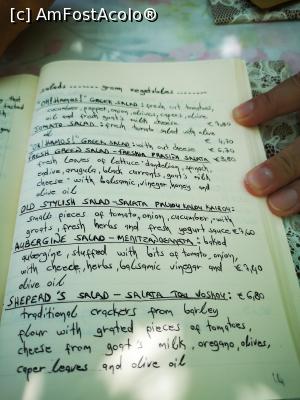 [c] AmFostAcolo®
salads ------- green vegetables -------
"OH! HAMOS!" GREEK SALAD: fresh cut tomatoes,
cucumber, pepper, onion, olives, capers, olive
oil and fresh goat's milk cheese € 7,80
TOMATO SALAD: fresh tomato salad with olive
oil
"OH! HAMOS!" GREEK SALAD: with out cheese
FRESH GREEN SALAD - FRESKIA PRASINI SALATA
fresh leaves of lettuce, dandelion, spinach,
endive, arugula, black currants, goat's milk
cheese with balsamic vinegar honey and
olive oil
OLD STYLISH SALAD - SALATA PALIOU KALOU KAIROU:
small pieces of tomato, onion, cucumber, with
groats, fresh herbs and fresh yogurt sauce
AUBERGINE SALAD - MELITZANOSALATA: baked
aubergine, stuffed with bits of tomato, onion,
with cheese, herbs, balsamic vinegar and
olive oil
SHEPERD'S SALAD - SALATA TOU VOSKOU: € 6,80
traditional crackers from barley
flour with grated pieces of tomatoes,
cheese from goat's milk, oregano, olives,
caper leaves and olive oil